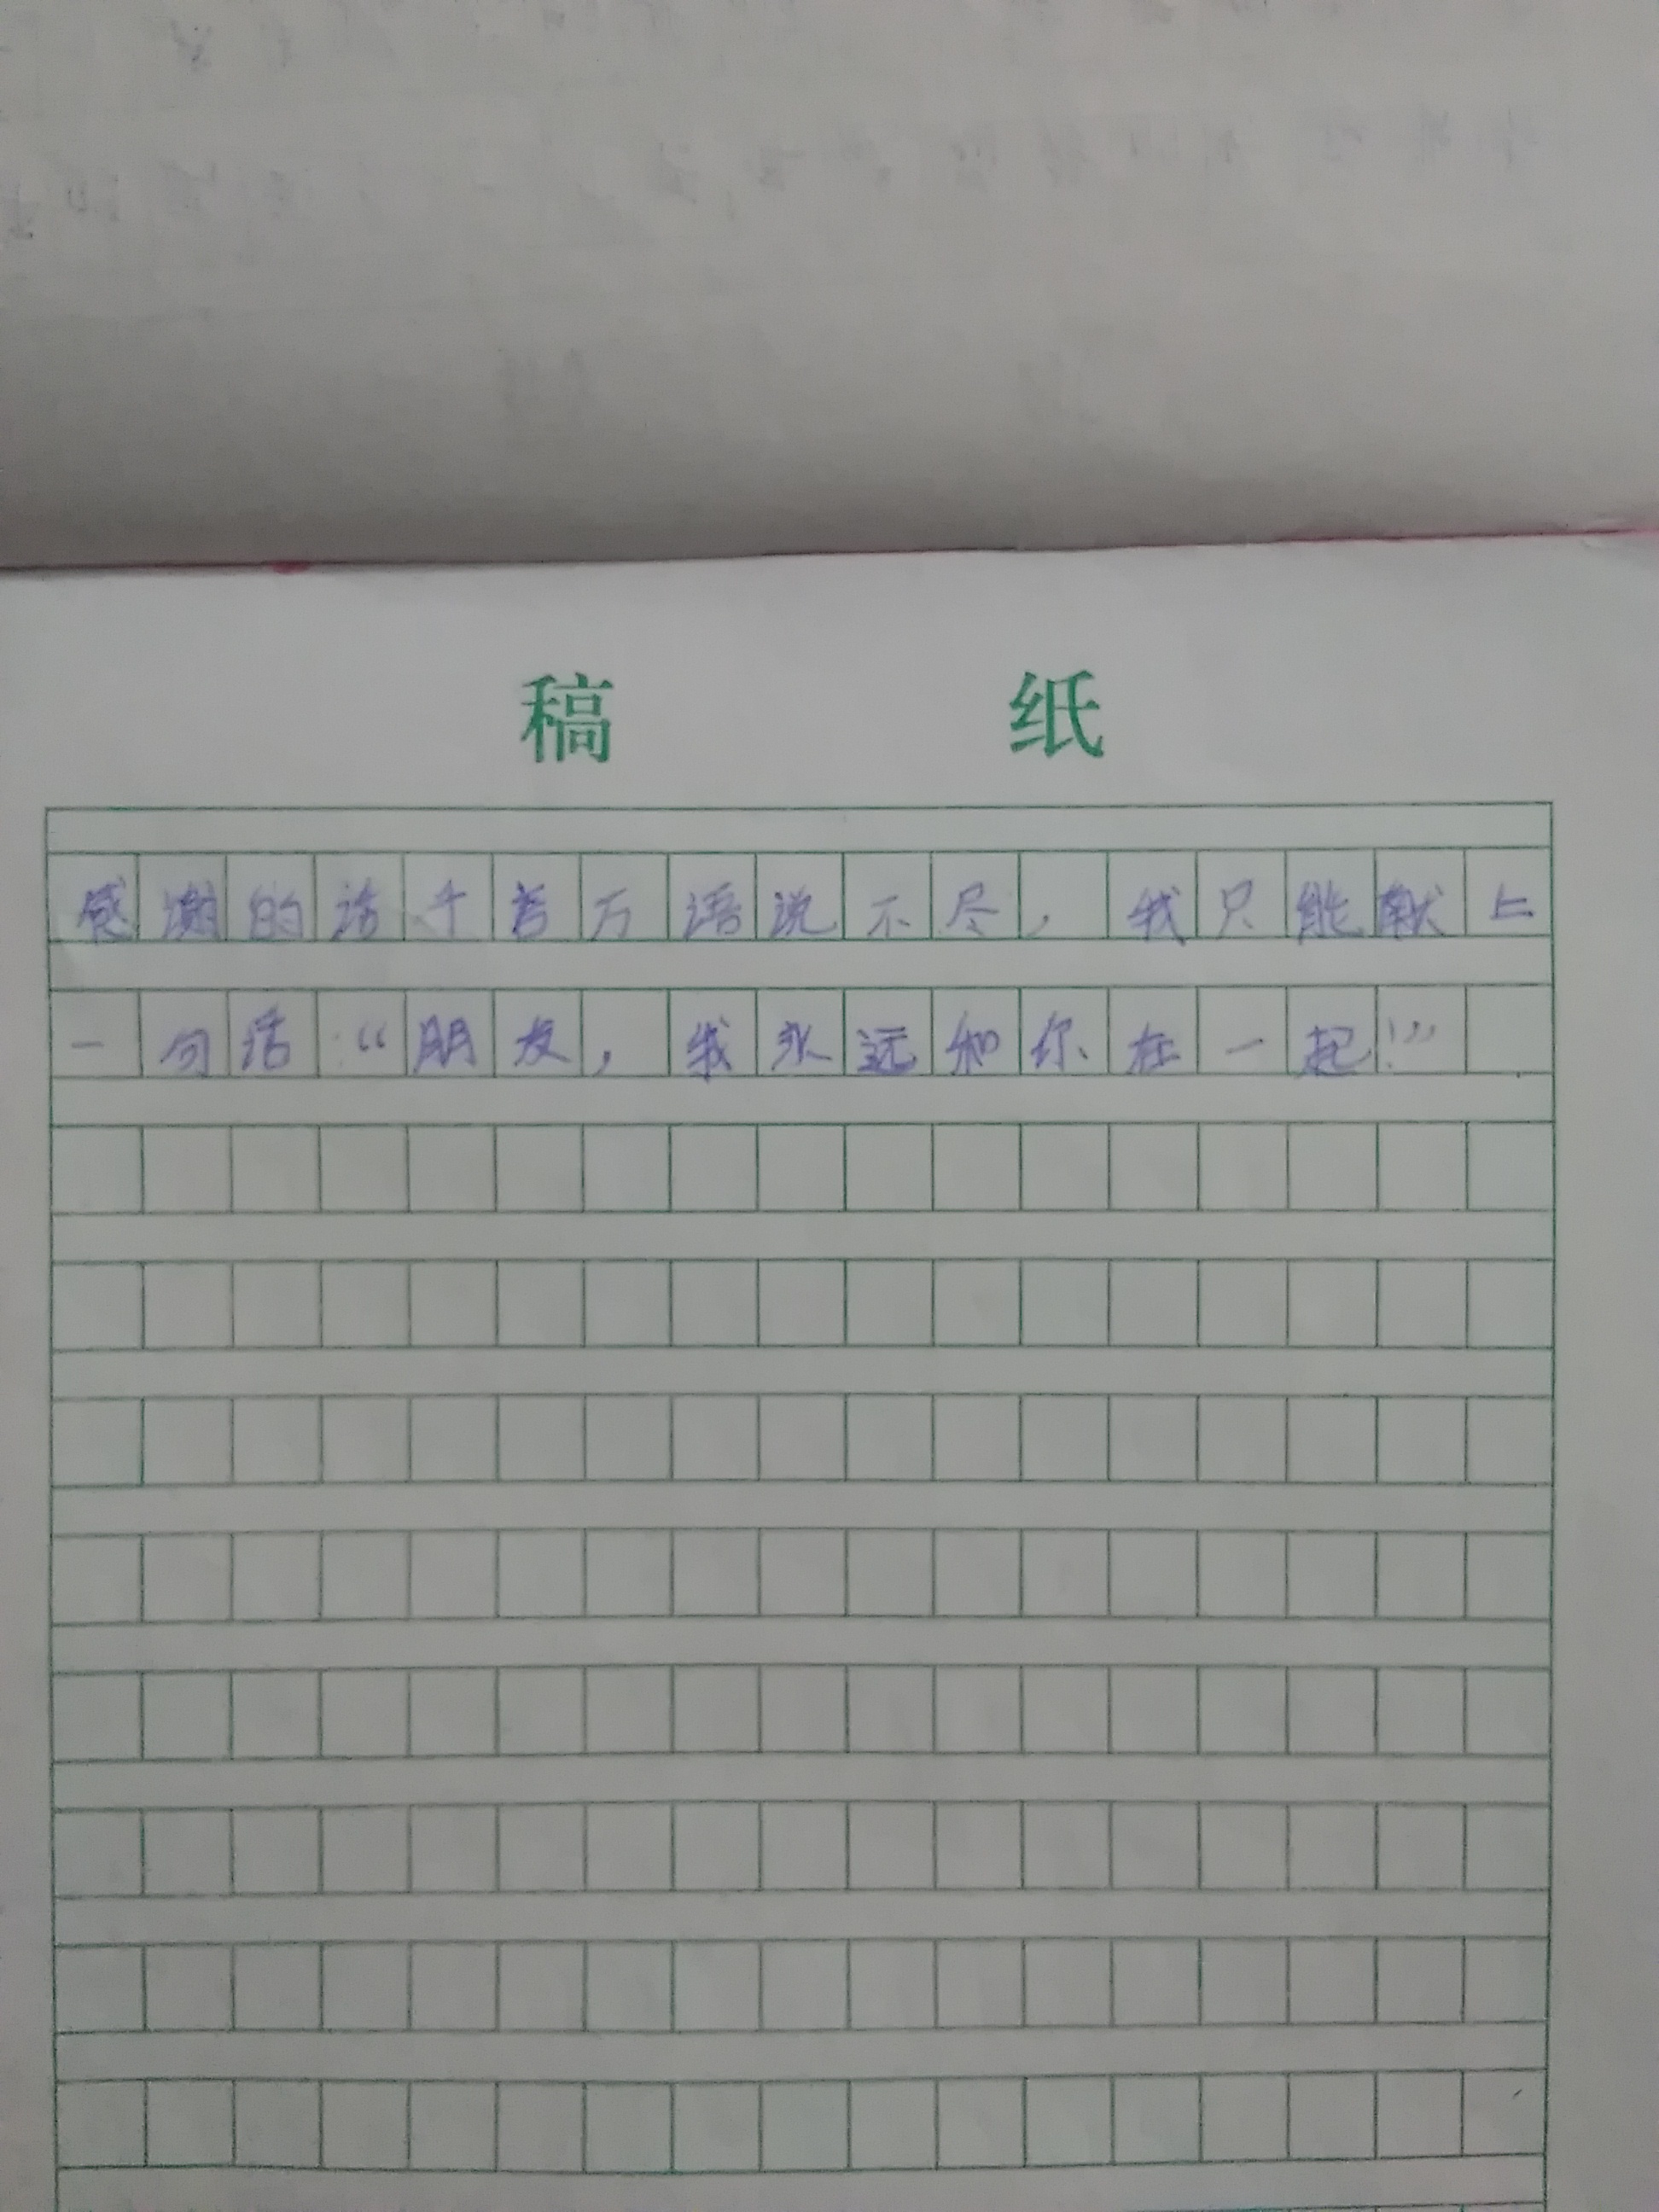 稿 纸
感谢的话千言万语说不尽，我只能献上
一句话：“朋友，我永远和你在一起！”